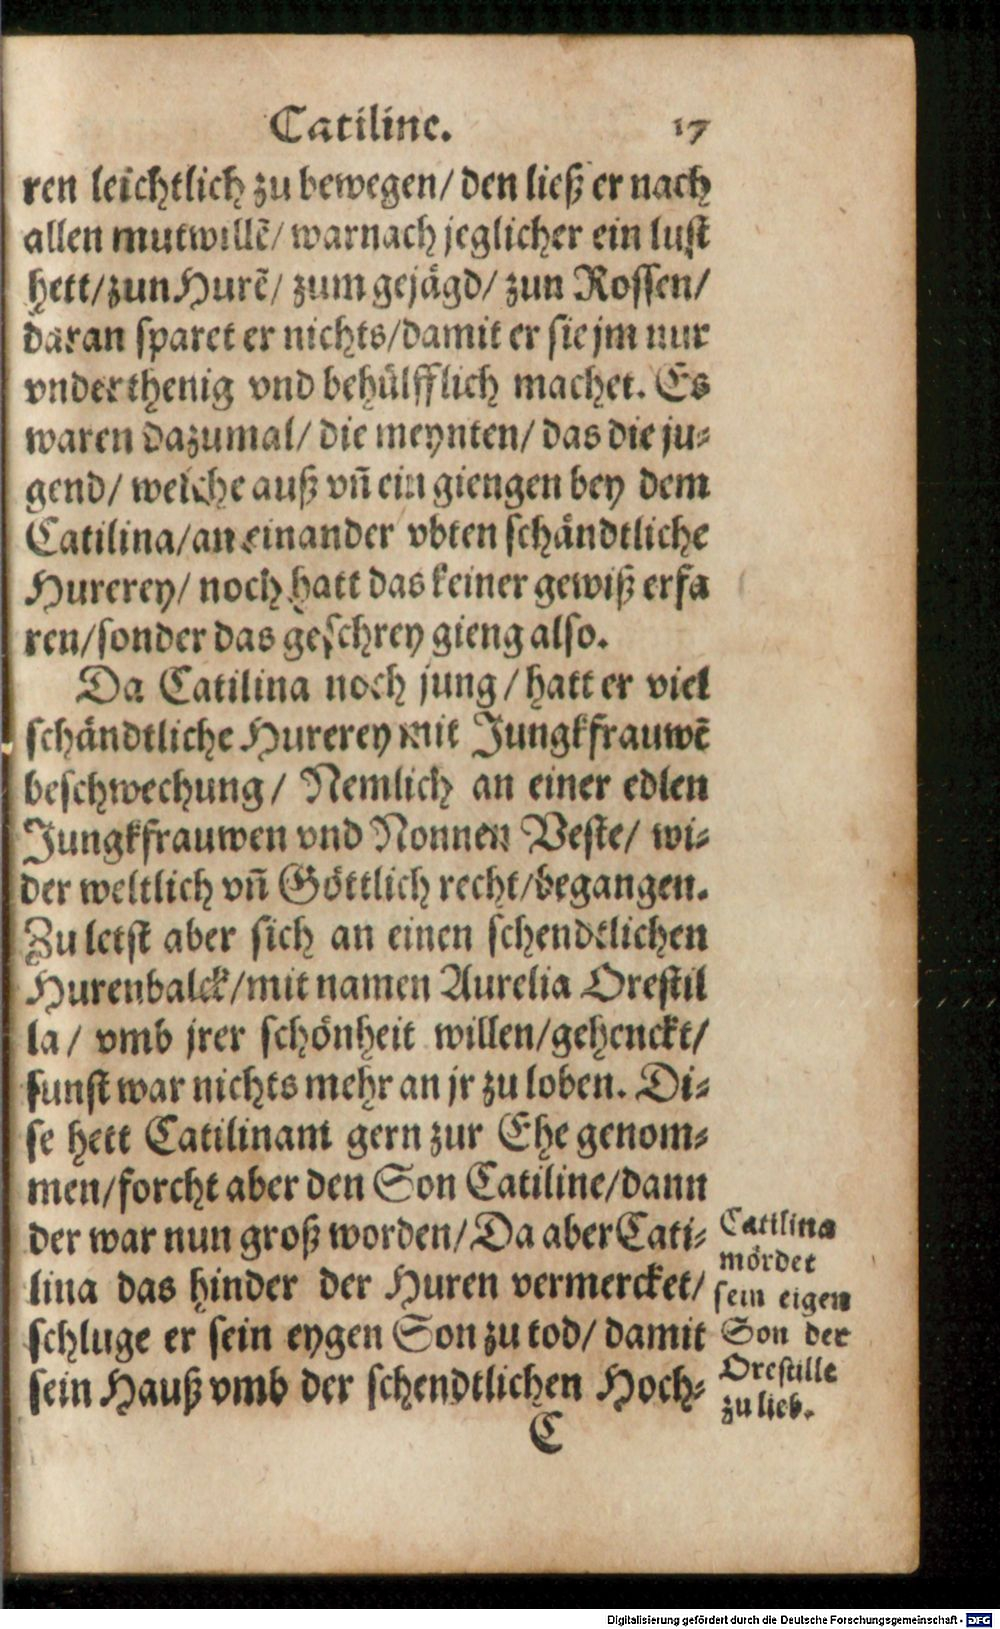 Catiline. 17
ren leichtlich zu bewegen/ den ließ er nach
allen mutwillẽ/ warnach jeglicher ein lust
hett/zun Hurẽ/ zum gejägd/ zun Rossen/
daran sparet er nichts/damit er sie jm nur
vnderthenig vnd behülfflich machet. Es
waren dazumal/ die meynten/ das die ju⸗
gend/ welche auß vñ ein giengen bey dem
Catilina/an einander vbten schändtliche
Hurerey/ noch hatt das keiner gewiß erfa
ren/sonder das geschrey gieng also.
Da Catilina noch jung/ hatt er viel
schändtliche Hurerey mit Jungkfrauwẽ
beschwechung/ Nemlich an einer edlen
Jungkfrauwen vnd Nonnen Veste/ wi⸗
der weltlich vñ Göttlich recht/begangen.
Zu letst aber sich an einen schendtlichen
Hurenbalck/mit namen Aurelia Orestil
la/ vmb jrer schönheit willen/gehenckt/
sunst war nichts mehr an jr zu loben. Di⸗
se hett Catilinam gern zur Ehe genom⸗
men/forcht aber den Son Catiline/dann
der war nun groß worden/Da aber Cati⸗
lina das hinder der Huren vermercket/
schluge er sein eygen Son zu tod/ damit
sein Hauß vmb der schendtlichen Hoch⸗
Catilina
mördet
sein eigen
Son der
Orestille
zu lieb.
C
Digitalisierung gefördert durch die Deutsche Forschungsgemeinschaft - DFG